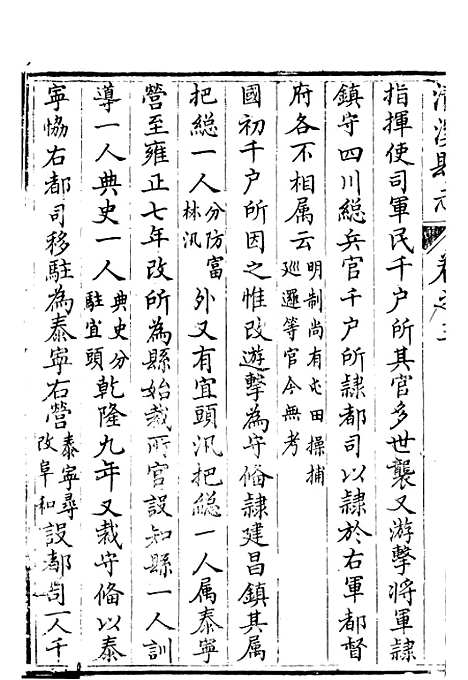 清溪縣志 卷之三
指揮使司軍民千户所其官多世襲又游擊將軍隷
鎮守四川総兵官千户所隷都司以隷於右軍都督
府各不相属云明制尚有屯田操捕廵邏等官今無考
國初千户所因之惟改遊擊為守俻隷建昌鎮其属
把総一人分防富林汛外又有宜頭汛把総一人属泰寧
營至雍正七年改所為縣始裁所官設知縣一人訓
導一人典史一人典史分駐宜頭乾隆九年又裁守俻以泰
寧恊右都司移駐為泰寧右營泰寧尋改阜和設都司一人千